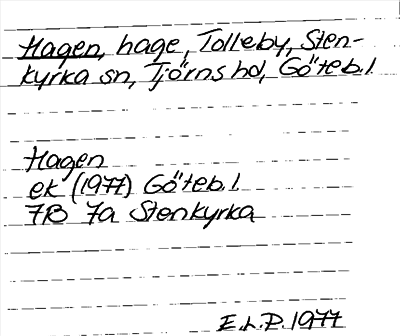 Hagen, hage, Tolleby, Sten-
kyrka sn, Tjörns hd, Göteb. l.
Hagen
ek (1977) Göteb. l.
7B 7a Stenkyrka
E.L.P. 1977